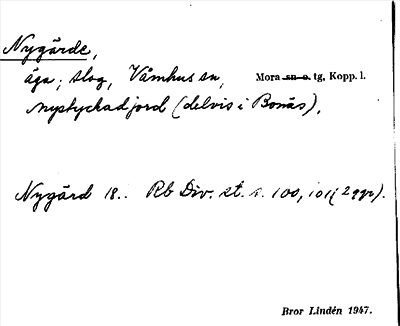 Nygärde,
äga; slog, Våmhus sn, Mora sn o. tg, Kopp. l.
nystyckad jord (delvis i Bonäs).
Nygård 18.. Rb Div. st. s. 100, 101 (2 ggr).
Bror Lindén 1947.